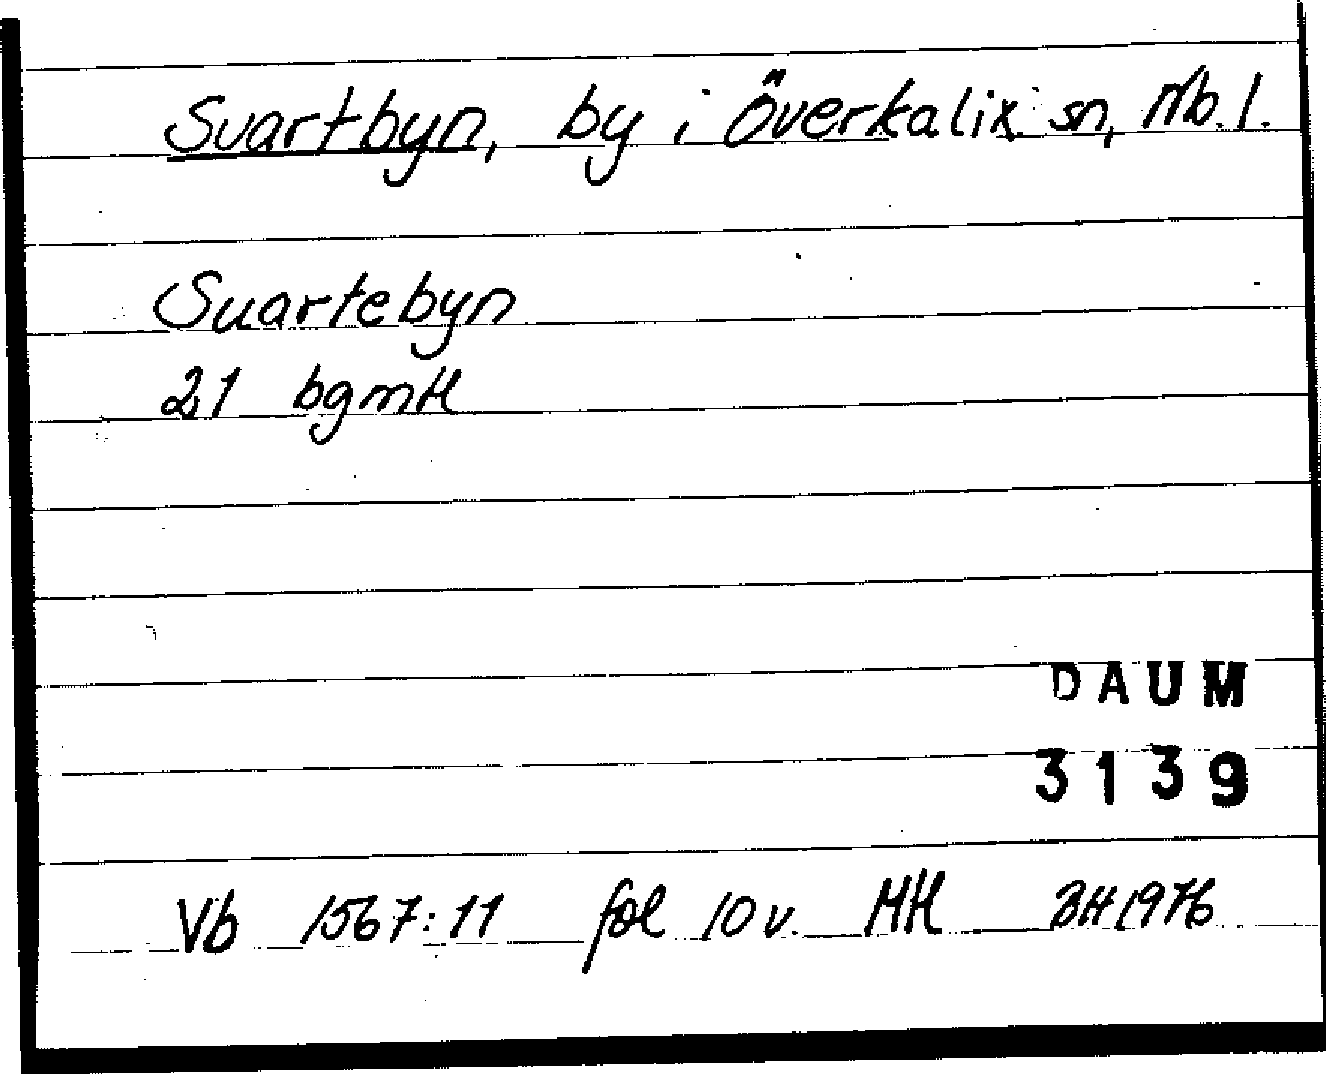 Svartbyn, by i Överkalix sn, Nb. l.
Suartebyn
21 bgmH
DAUM
3139
Vb 1567:11 fol 10 v. MH BH 1976